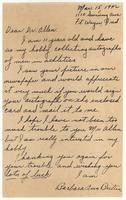 Mar. 15, 1942
1110 Sinclair Ave
Ft. Wayne Ind
Dear Mr. Allen
I am 11 years old and have
as my hobby collecting autographs
of men in athletics
I saw your picture in our
newspaper and would appreciate
it very much if you would sign
your autograph on the enclosed
card and mail it to me.
I hope I have not been
much trouble to you Mr. Allen
but I am really interested in my
hobby.
Thanking you again for
your trouble and wishing you
lots of luck I am
Barbara Ann